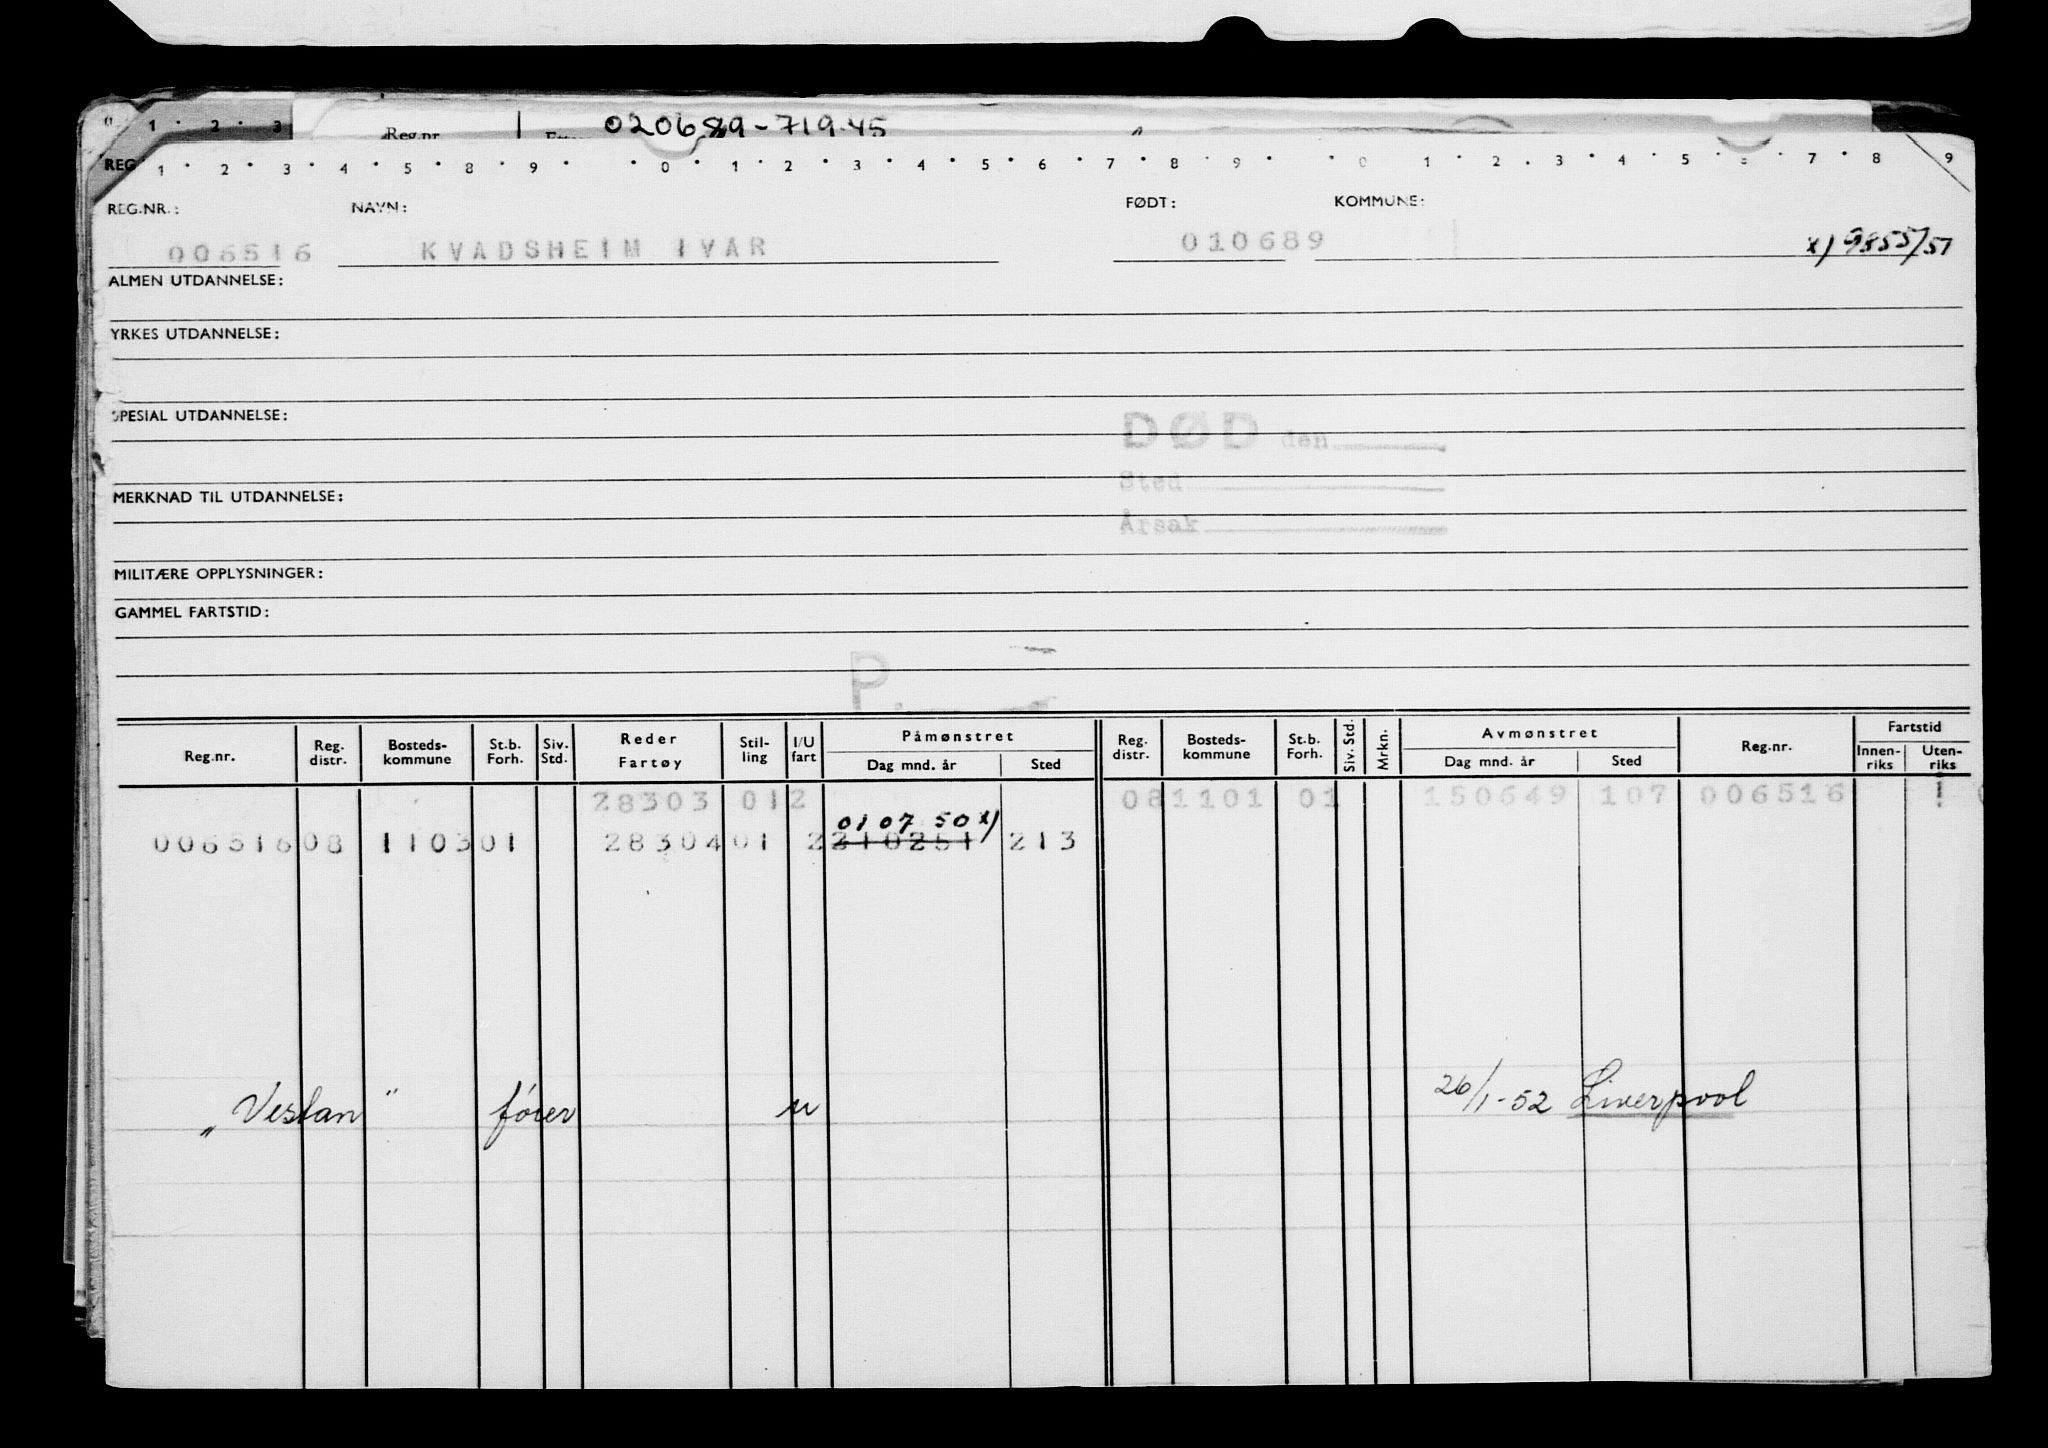 020689-719.45
Reg.nr
1 2 3
REG 1 2 3 4 5 8 9 0 1 2 3 4 5 6 7 8 9 0 1 2 3 4 5 6 7 8 9
REG.NR.: NAVN: FØDT: KOMMUNE:
006516 KVADSHEIM IVAR 010689 x) 9855/51
ALMEN UTDANNELSE:
YRKES UTDANNELSE:
SPESIAL UTDANNELSE:
DØD den
Sted
MERKNAD TIL UTDANNELSE:
Årsak
MILITÆRE OPPLYSNINGER:
GAMMEL FARTSTID:
P.
Reg.nr. Reg. distr. Bosteds-kommune St.b. Forh. Siv. Std. Reder Fartøy Stil-ling I/U fart Påmønstret Dag mnd. år Sted Reg. distr. Bosteds-kommune St.b. Forh. Siv. Std. Mrkn. Avmønstret Dag mnd. år Sted Reg.nr. Fartstid Innen-riks Uten-riks
28303 012 081101 01 150649 107 006516 1
01 07 50 x)
006516 08 1103 01 28304 01 2 210251 213
„Vestan" fører u 26/1-52 Liverpool